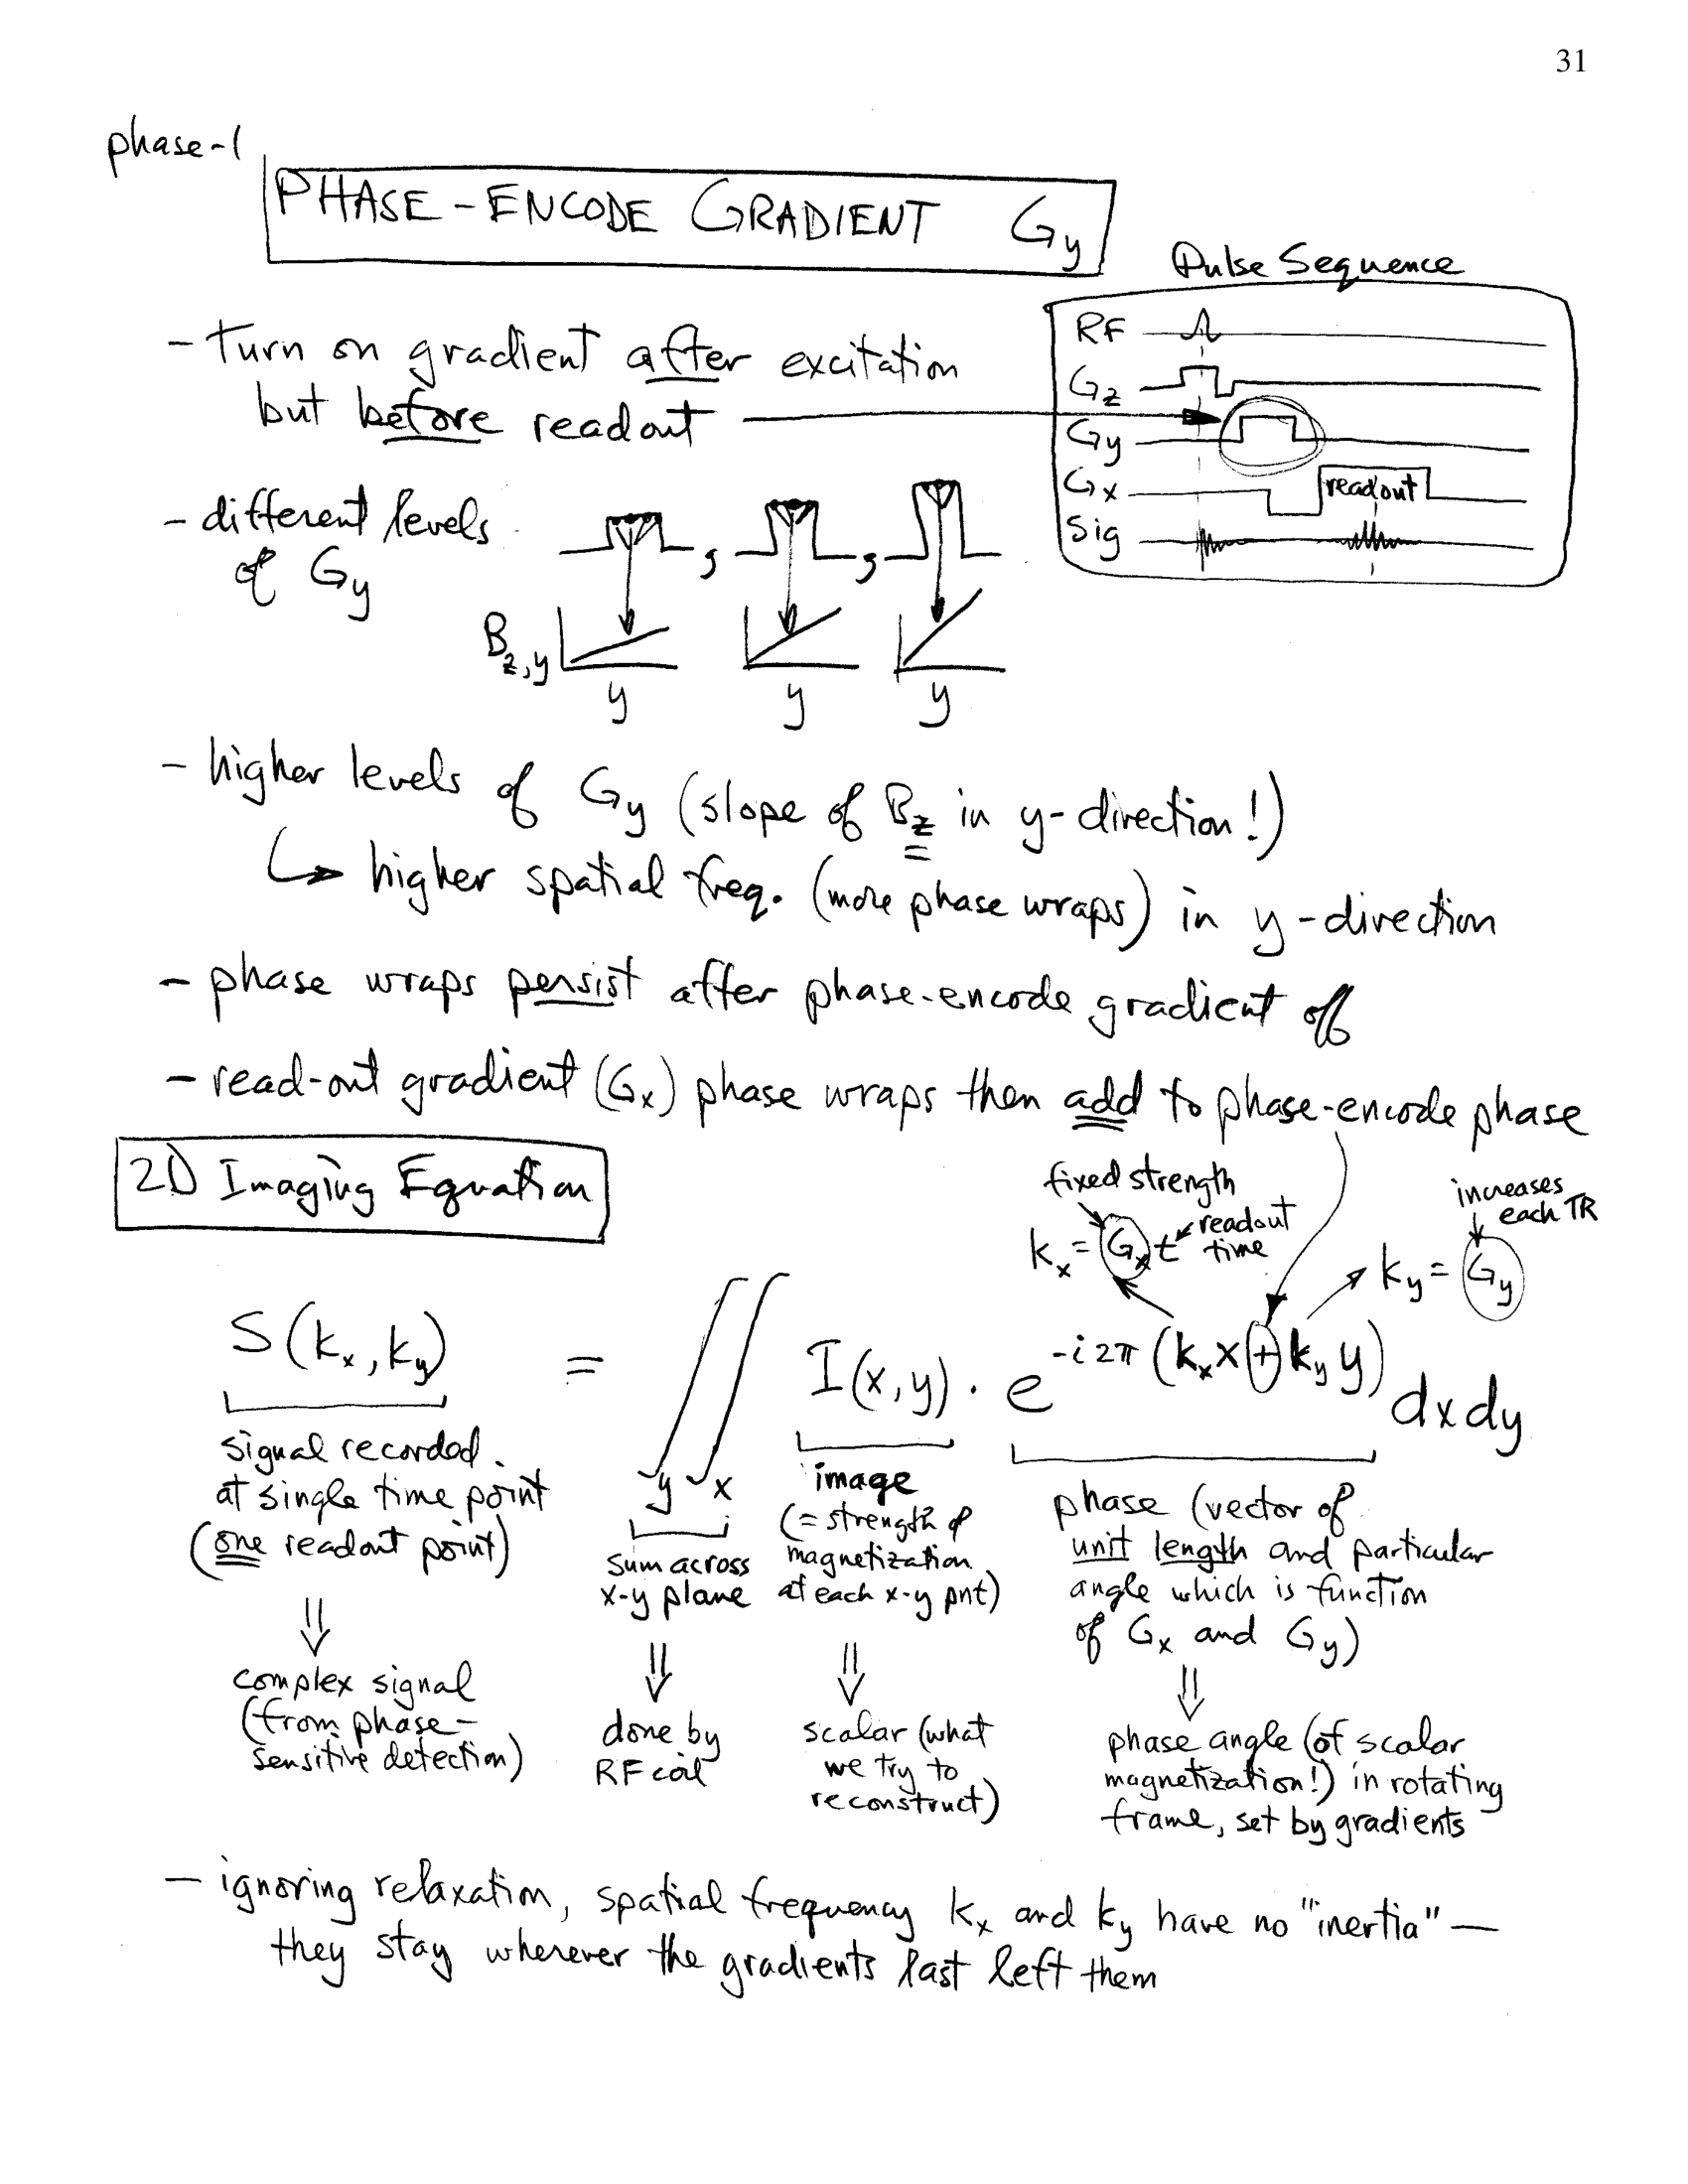 31
phase-1
PHASE-ENCODE GRADIENT Gy
Pulse Sequence
RF
Gz
Gy
Gx
readout
Sig
- turn on gradient after excitation
but before readout
- different levels
of Gy
, ,
Bz,y
y y y
- higher levels of Gy (slope of Bz in y-direction!)
↳ higher spatial freq. (more phase wraps) in y-direction
- phase wraps persist after phase-encode gradient off
- read-out gradient (Gx) phase wraps then add to phase-encode phase
2D Imaging Equation
fixed strength
kx = Gx t
readout
time
increases
each TR
ky = Gy
S(kx, ky) = ∫y ∫x I(x,y) · e^-i2π(kx x + ky y) dx dy
signal recorded
at single time point
(one readout point)
⇓
complex signal
(from phase-
sensitive detection)
sum across
x-y plane
⇓
done by
RF coil
image
(= strength of
magnetization
at each x-y pnt)
⇓
scalar (what
we try to
reconstruct)
phase (vector of
unit length and particular
angle which is function
of Gx and Gy)
⇓
phase angle (of scalar
magnetization!) in rotating
frame, set by gradients
- ignoring relaxation, spatial frequency kx and ky have no "inertia" —
they stay wherever the gradients last left them